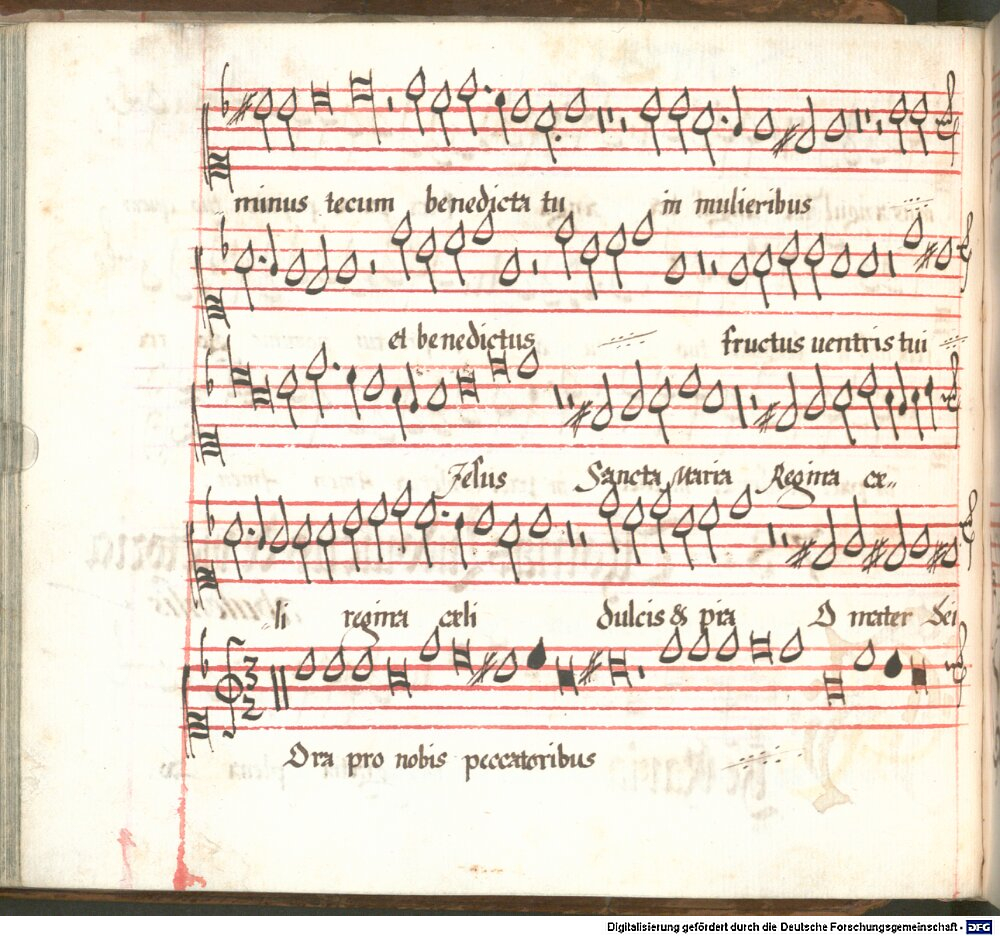 minus tecum benedicta tu in mulieribus
et benedictus fructus uentris tui
Jesus Sancta Maria Regina cæ-
li regina cæli dulcis & pia O mater dei
3
2
Ora pro nobis peccatoribus
Digitalisierung gefördert durch die Deutsche Forschungsgemeinschaft - DFG